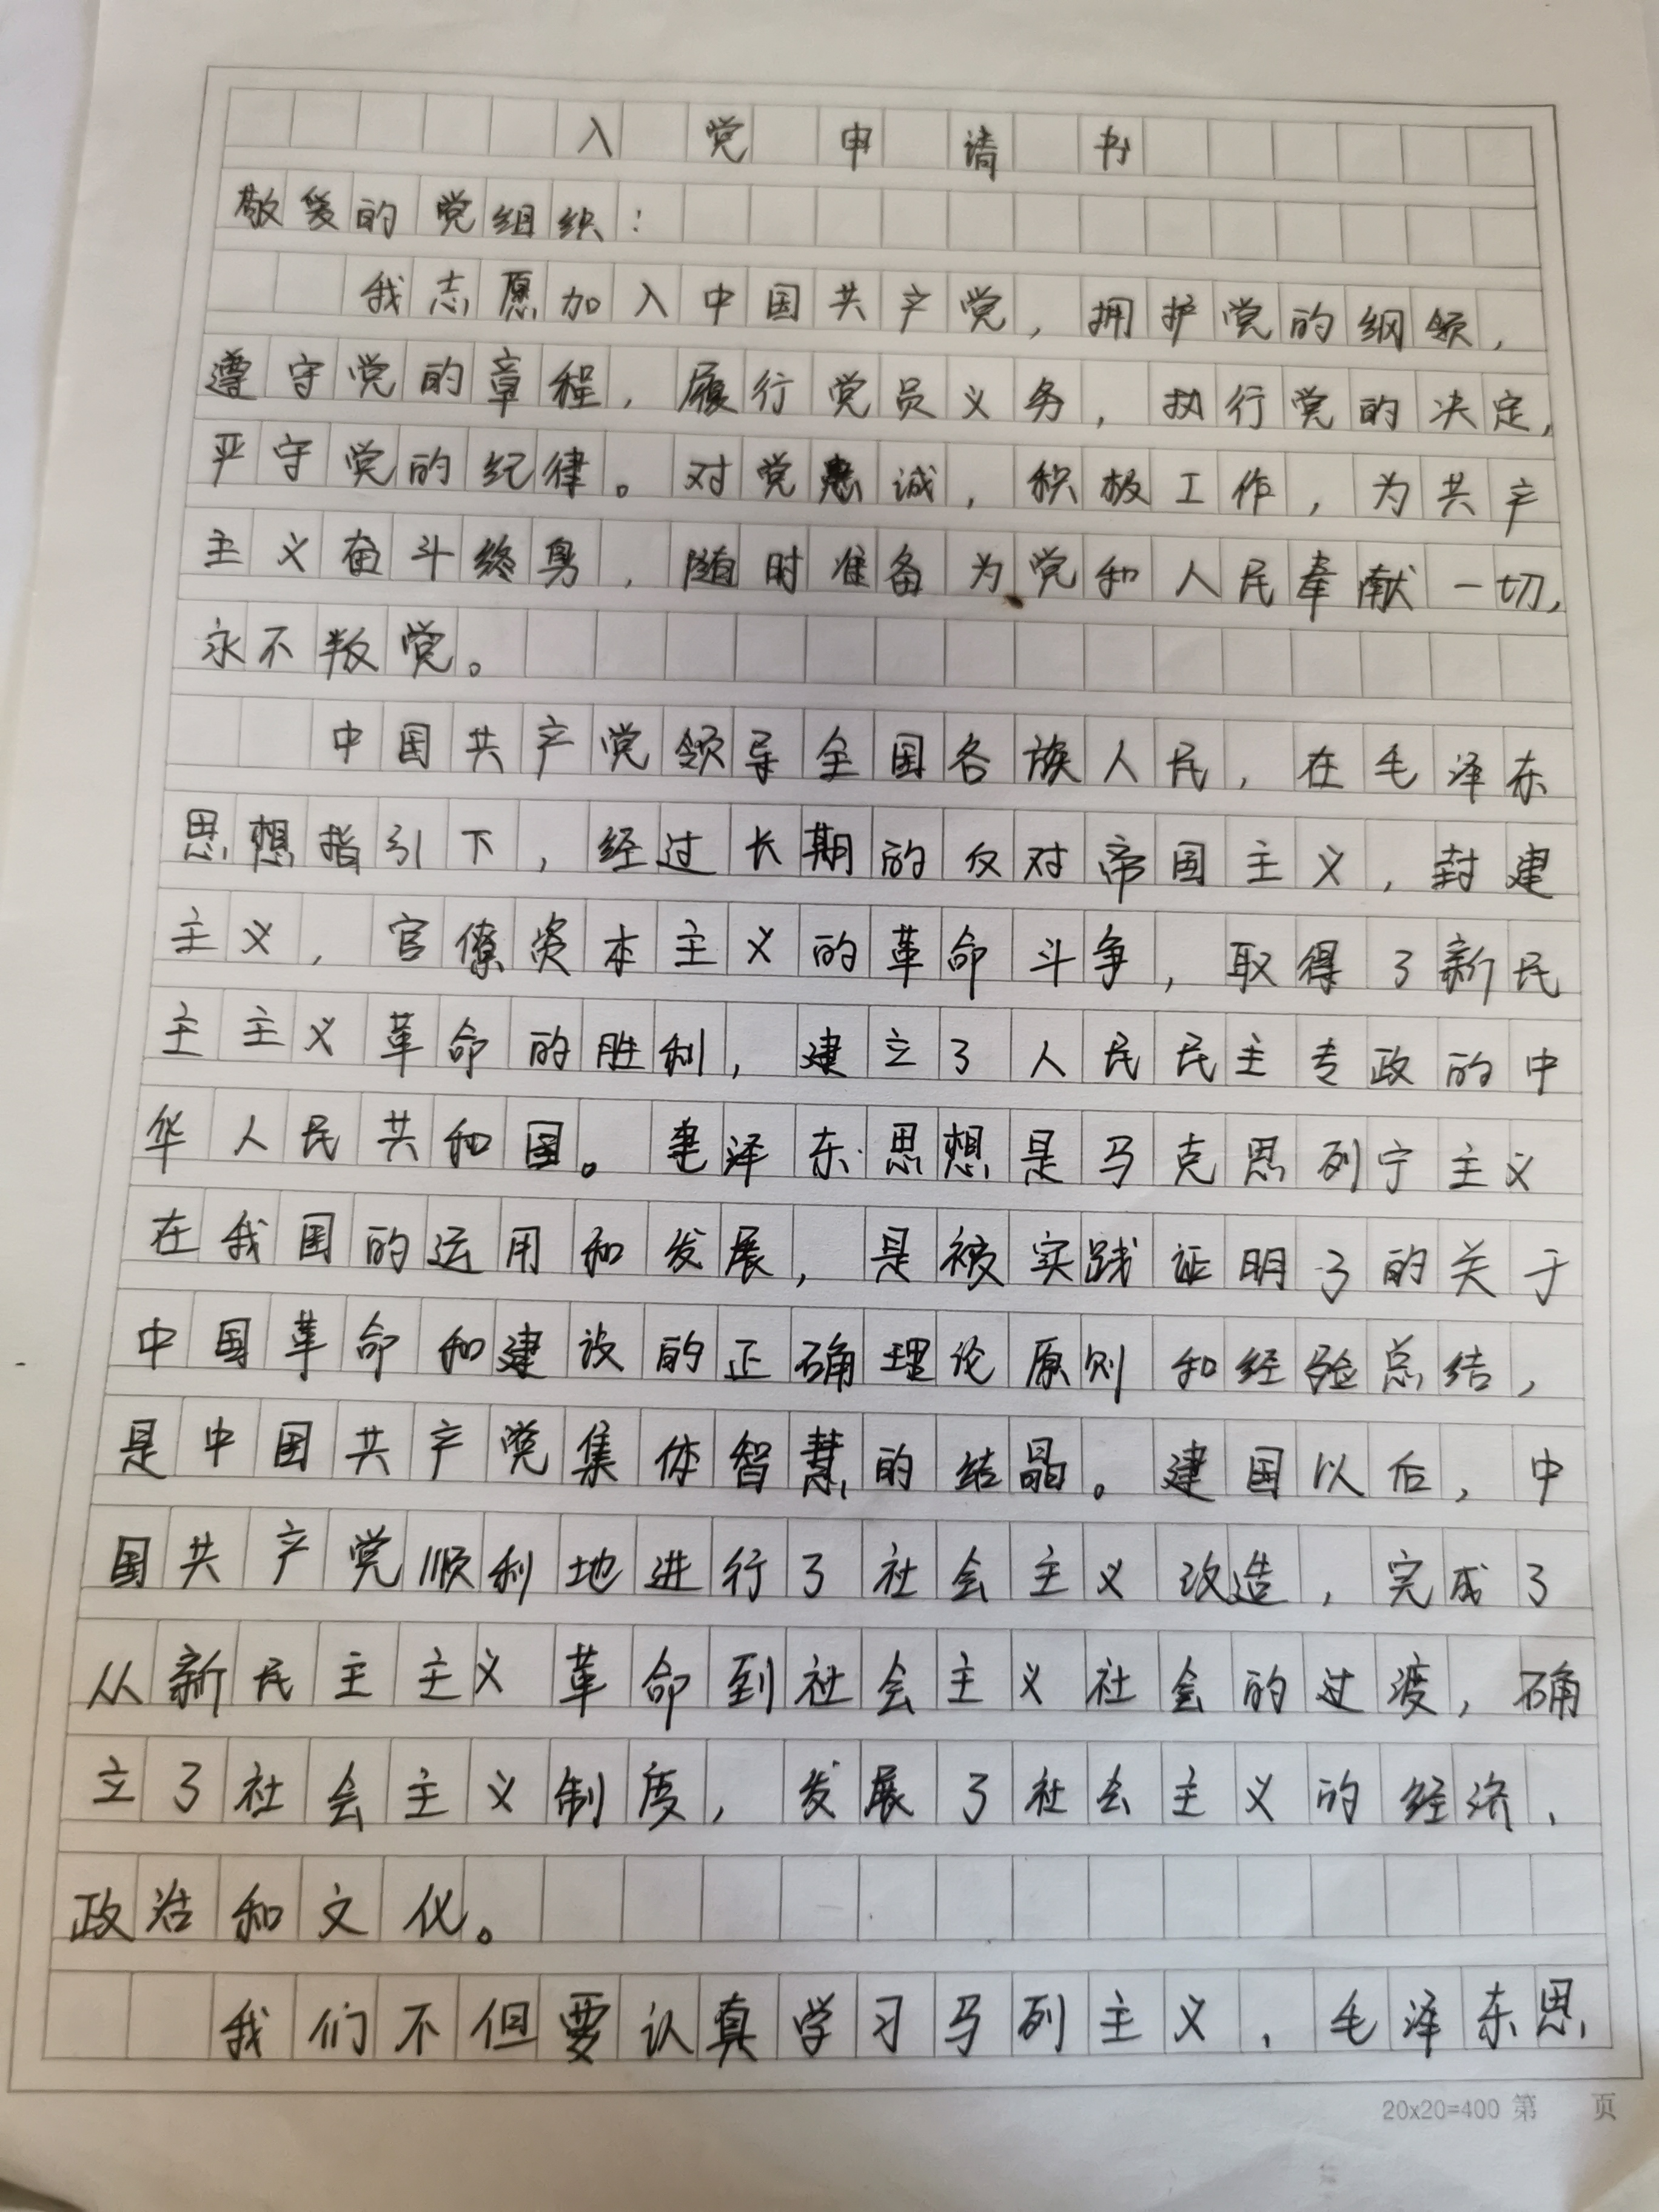 入党申请书
敬爱的党组织：
我志愿加入中国共产党，拥护党的纲领，
遵守党的章程，履行党员义务，执行党的决定，
严守党的纪律。对党忠诚，积极工作，为共产
主义奋斗终身，随时准备为党和人民奉献一切，
永不叛党。
中国共产党领导全国各族人民，在毛泽东
思想指引下，经过长期的反对帝国主义，封建
主义，官僚资本主义的革命斗争，取得了新民
主主义革命的胜利，建立了人民民主专政的中
华人民共和国。毛泽东思想是马克思列宁主义
在我国的运用和发展，是被实践证明了的关于
中国革命和建设的正确理论原则和经验总结，
是中国共产党集体智慧的结晶。建国以后，中
国共产党顺利地进行了社会主义改造，完成了
从新民主主义革命到社会主义社会的过渡，确
立了社会主义制度，发展了社会主义的经济、
政治和文化。
我们不但要认真学习马列主义、毛泽东思
20x20=400 第 页